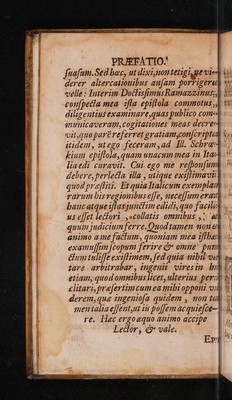 PRÆFATIO.
suasum. Sed hæc, ut dixi, non tetigi, ne vi-
derer altercationibus ansam porrigere
velle: Interim Doctissimus Ramazzinus,
conspecta mea ista epistola commotus,
diligentius examinare, quas publico com-
municaveram, cogitationes meas decre-
vit, quo parē referret gratiam, conscripta
itidem, ut ego feceram, ad Ill. Schræ-
kium epistola, quam una cum mea in Ita-
lia edi curavit. Cui ego me responsum
debere, perlecta illa, utique existimavi
quod præstiti. Et quia Italicum exemplar
rarum bis regionibus esse, necessum erat
hanc atque istas junctim edidi, quo facili-
us esset lectori, collatis omnibus,
quum judicium ferre. Quod tamen non eo
animo a me factum, quoniam mea isthæc
examussim scopum ferire & omne pun-
ctum tulisse existimem, sed quia nihil ve-
tare arbitrabar, ingenii vires in
etiam, quod omnibus licet, ulterius peri-
clitari, præsertim cum ea mihi opponi vi-
derem, quæ ingeniosa quidem, non ta-
men talia essent, ut iis possem acquiesce-
re. Hæc ergo æquo animo accipe
Lector, & vale.